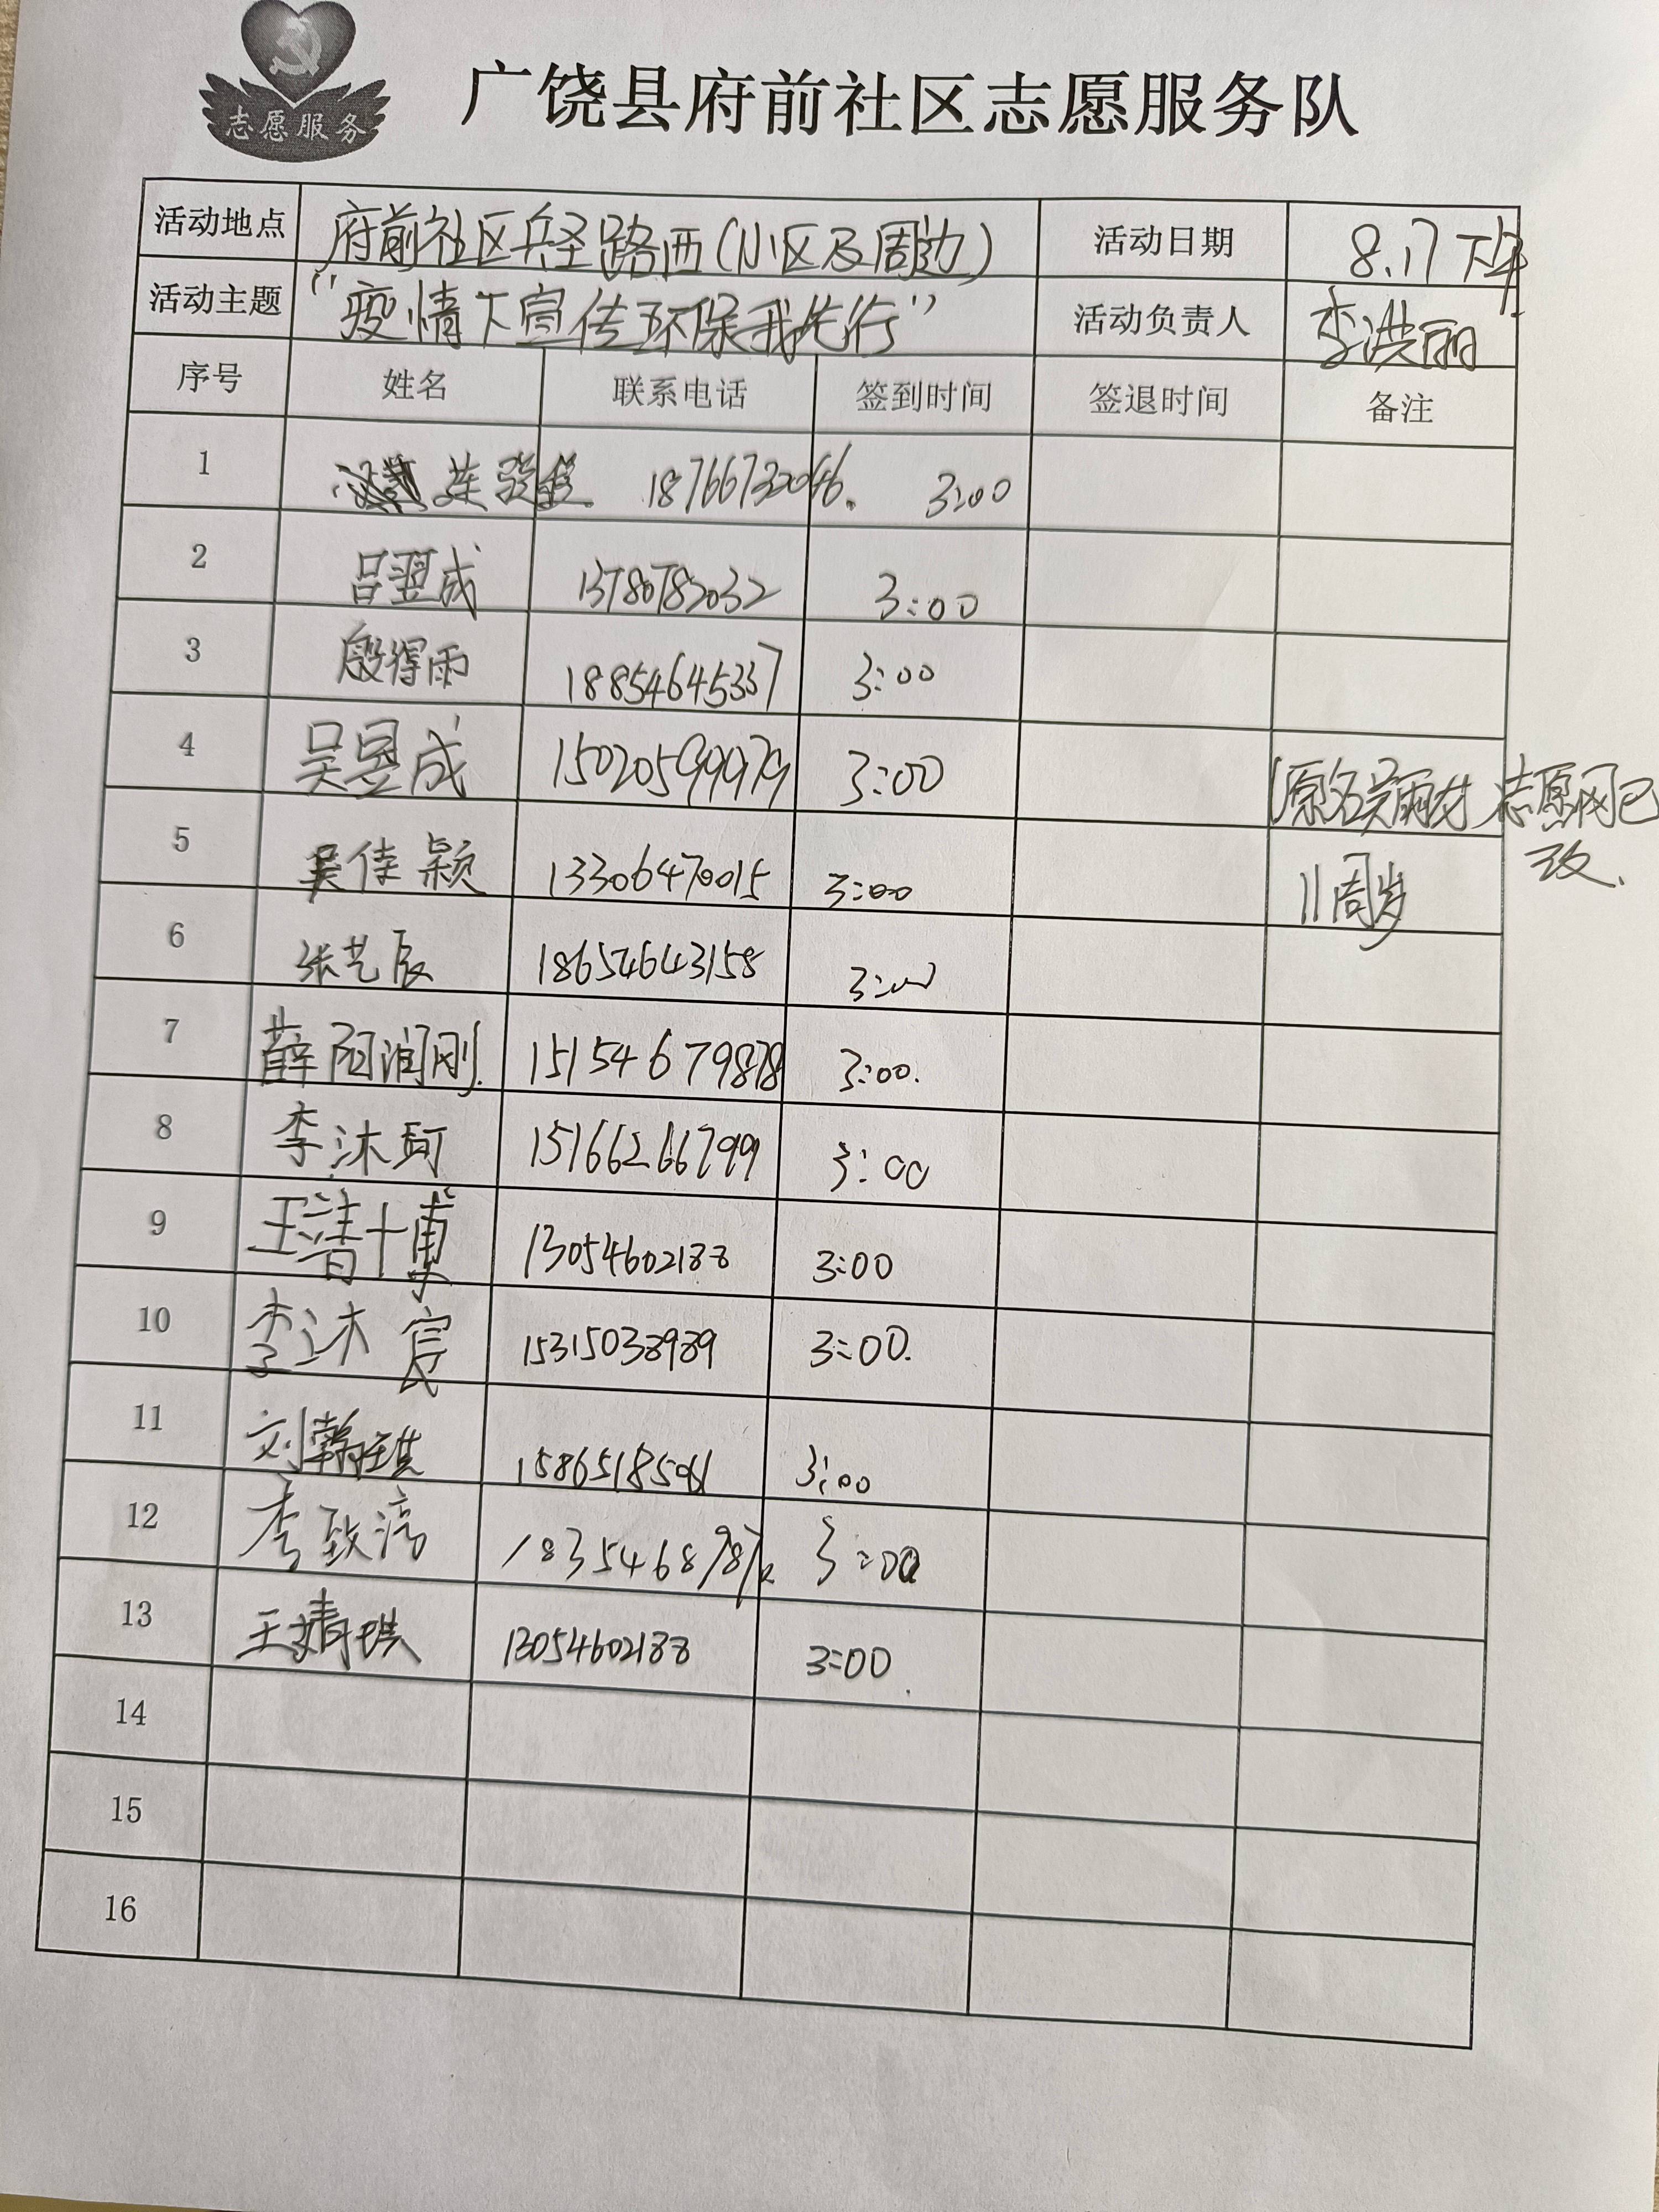 志愿服务
广饶县府前社区志愿服务队
活动地点 府前社区兵圣路西(小区及周边) 活动日期 8.17下午
活动主题 “疫情下宣传环保我先行” 活动负责人 李洪丽
序号 姓名 联系电话 签到时间 签退时间 备注
1 18766732046. 3:00
2 吕翌成 13780782032 3:00
3 殷得雨 18854645337 3:00
4 吴昱成 15020599979 3:00 (原名吴雨材 志愿网已
改.
5 吴佳颖 13306470015 3:00 11周岁
6 张艺辰 18654643158 3:00
7 薛阳润刚. 15154679878 3:00.
8 李沐珂 15166266799 3:00
9 王清 13054602188 3:00
10 李沐宸 15315038989 3:00.
11 刘翰琪 15865185061 3:00
12 李致 3:00
13 王婧琪 13054602188 3:00
14
15
16